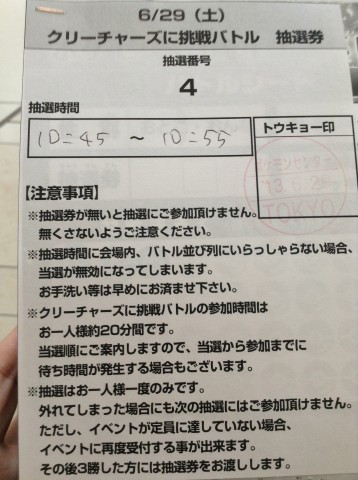 6/29（土）
クリーチャーズに挑戦バトル　抽選券
抽選番号
4
抽選時間
10:45 ～ 10:55
トウキョー印
ポケモンセンター
TOKYO
【注意事項】
※抽選券が無いと抽選にご参加頂けません。
無くさないようご注意ください。
※抽選時間に会場内、バトル並び列にいらっしゃらない場合、
当選が無効になってしまいます。
お手洗い等は早めにお済ませ下さい。
※クリーチャーズに挑戦バトルの参加時間は
お一人様約20分間です。
当選順にご案内しますので、当選から参加までに
待ち時間が発生する場合もございます。
※抽選はお一人様一度のみです。
外れてしまった場合にも次の抽選にはご参加頂けません。
ただし、イベントが定員に達していない場合、
イベントに再度受付する事が出来ます。
その後3勝した方には抽選券をお渡しします。